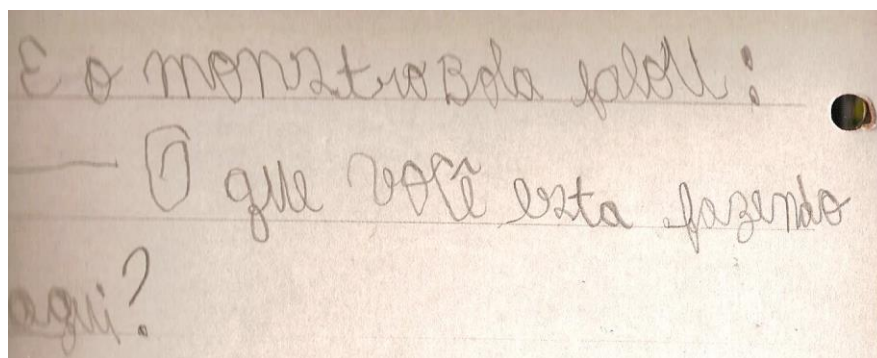 E o monstro Bola falou:
— O que você esta fazendo
aqui?